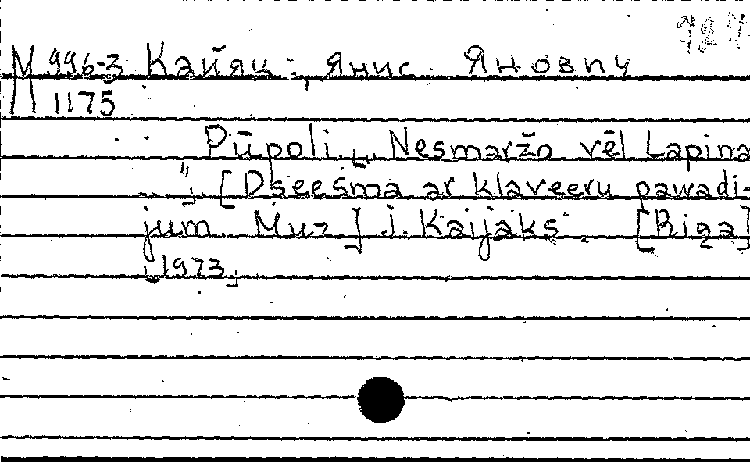 924
М 996-3 Кайяц, Янис Янович
1175
Pūpoli „Nesmaržo vēl Lapina
..." [Dseesma ar klaveeru pawadi-
jum. Muz.] J. Kaijaks. [Riga]
1973